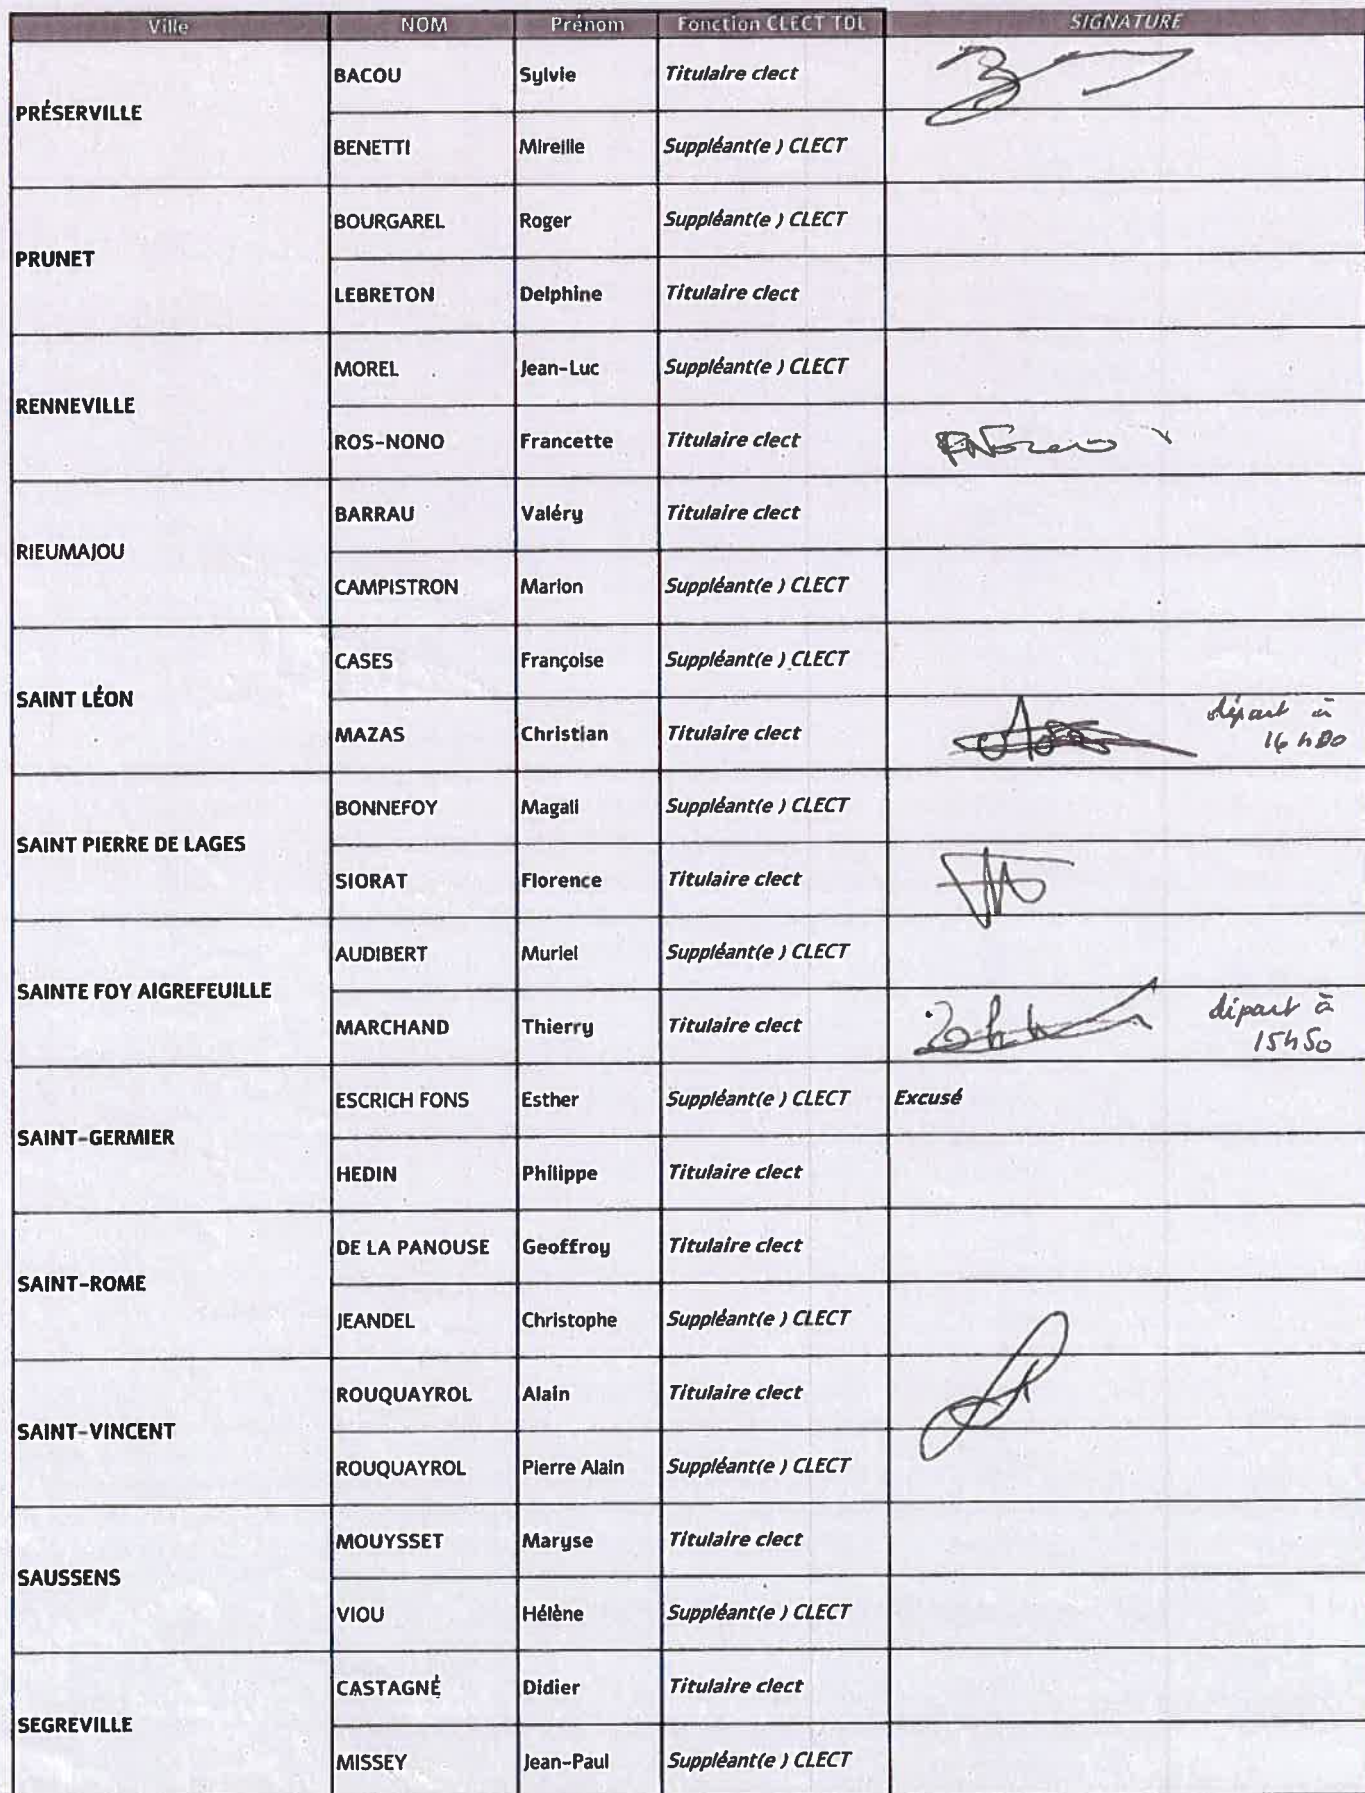 Ville NOM Prénom Fonction CLECT TDL SIGNATURE
PRÉSERVILLE
BACOU Sylvie Titulaire clect
BENETTI Mireille Suppléant(e ) CLECT
PRUNET
BOURGAREL Roger Suppléant(e ) CLECT
LEBRETON Delphine Titulaire clect
RENNEVILLE
MOREL Jean-Luc Suppléant(e ) CLECT
ROS-NONO Francette Titulaire clect
RIEUMAJOU
BARRAU Valéry Titulaire clect
CAMPISTRON Marion Suppléant(e ) CLECT
SAINT LÉON
CASES Françoise Suppléant(e ) CLECT
MAZAS Christian Titulaire clect départ à
16 h
SAINT PIERRE DE LAGES
BONNEFOY Magali Suppléant(e ) CLECT
SIORAT Florence Titulaire clect
SAINTE FOY AIGREFEUILLE
AUDIBERT Muriel Suppléant(e ) CLECT
MARCHAND Thierry Titulaire clect départ à
15h50
SAINT-GERMIER
ESCRICH FONS Esther Suppléant(e ) CLECT Excusé
HEDIN Philippe Titulaire clect
SAINT-ROME
DE LA PANOUSE Geoffroy Titulaire clect
JEANDEL Christophe Suppléant(e ) CLECT
SAINT-VINCENT
ROUQUAYROL Alain Titulaire clect
ROUQUAYROL Pierre Alain Suppléant(e ) CLECT
SAUSSENS
MOUYSSET Maryse Titulaire clect
VIOU Hélène Suppléant(e ) CLECT
SEGREVILLE
CASTAGNÉ Didier Titulaire clect
MISSEY Jean-Paul Suppléant(e ) CLECT